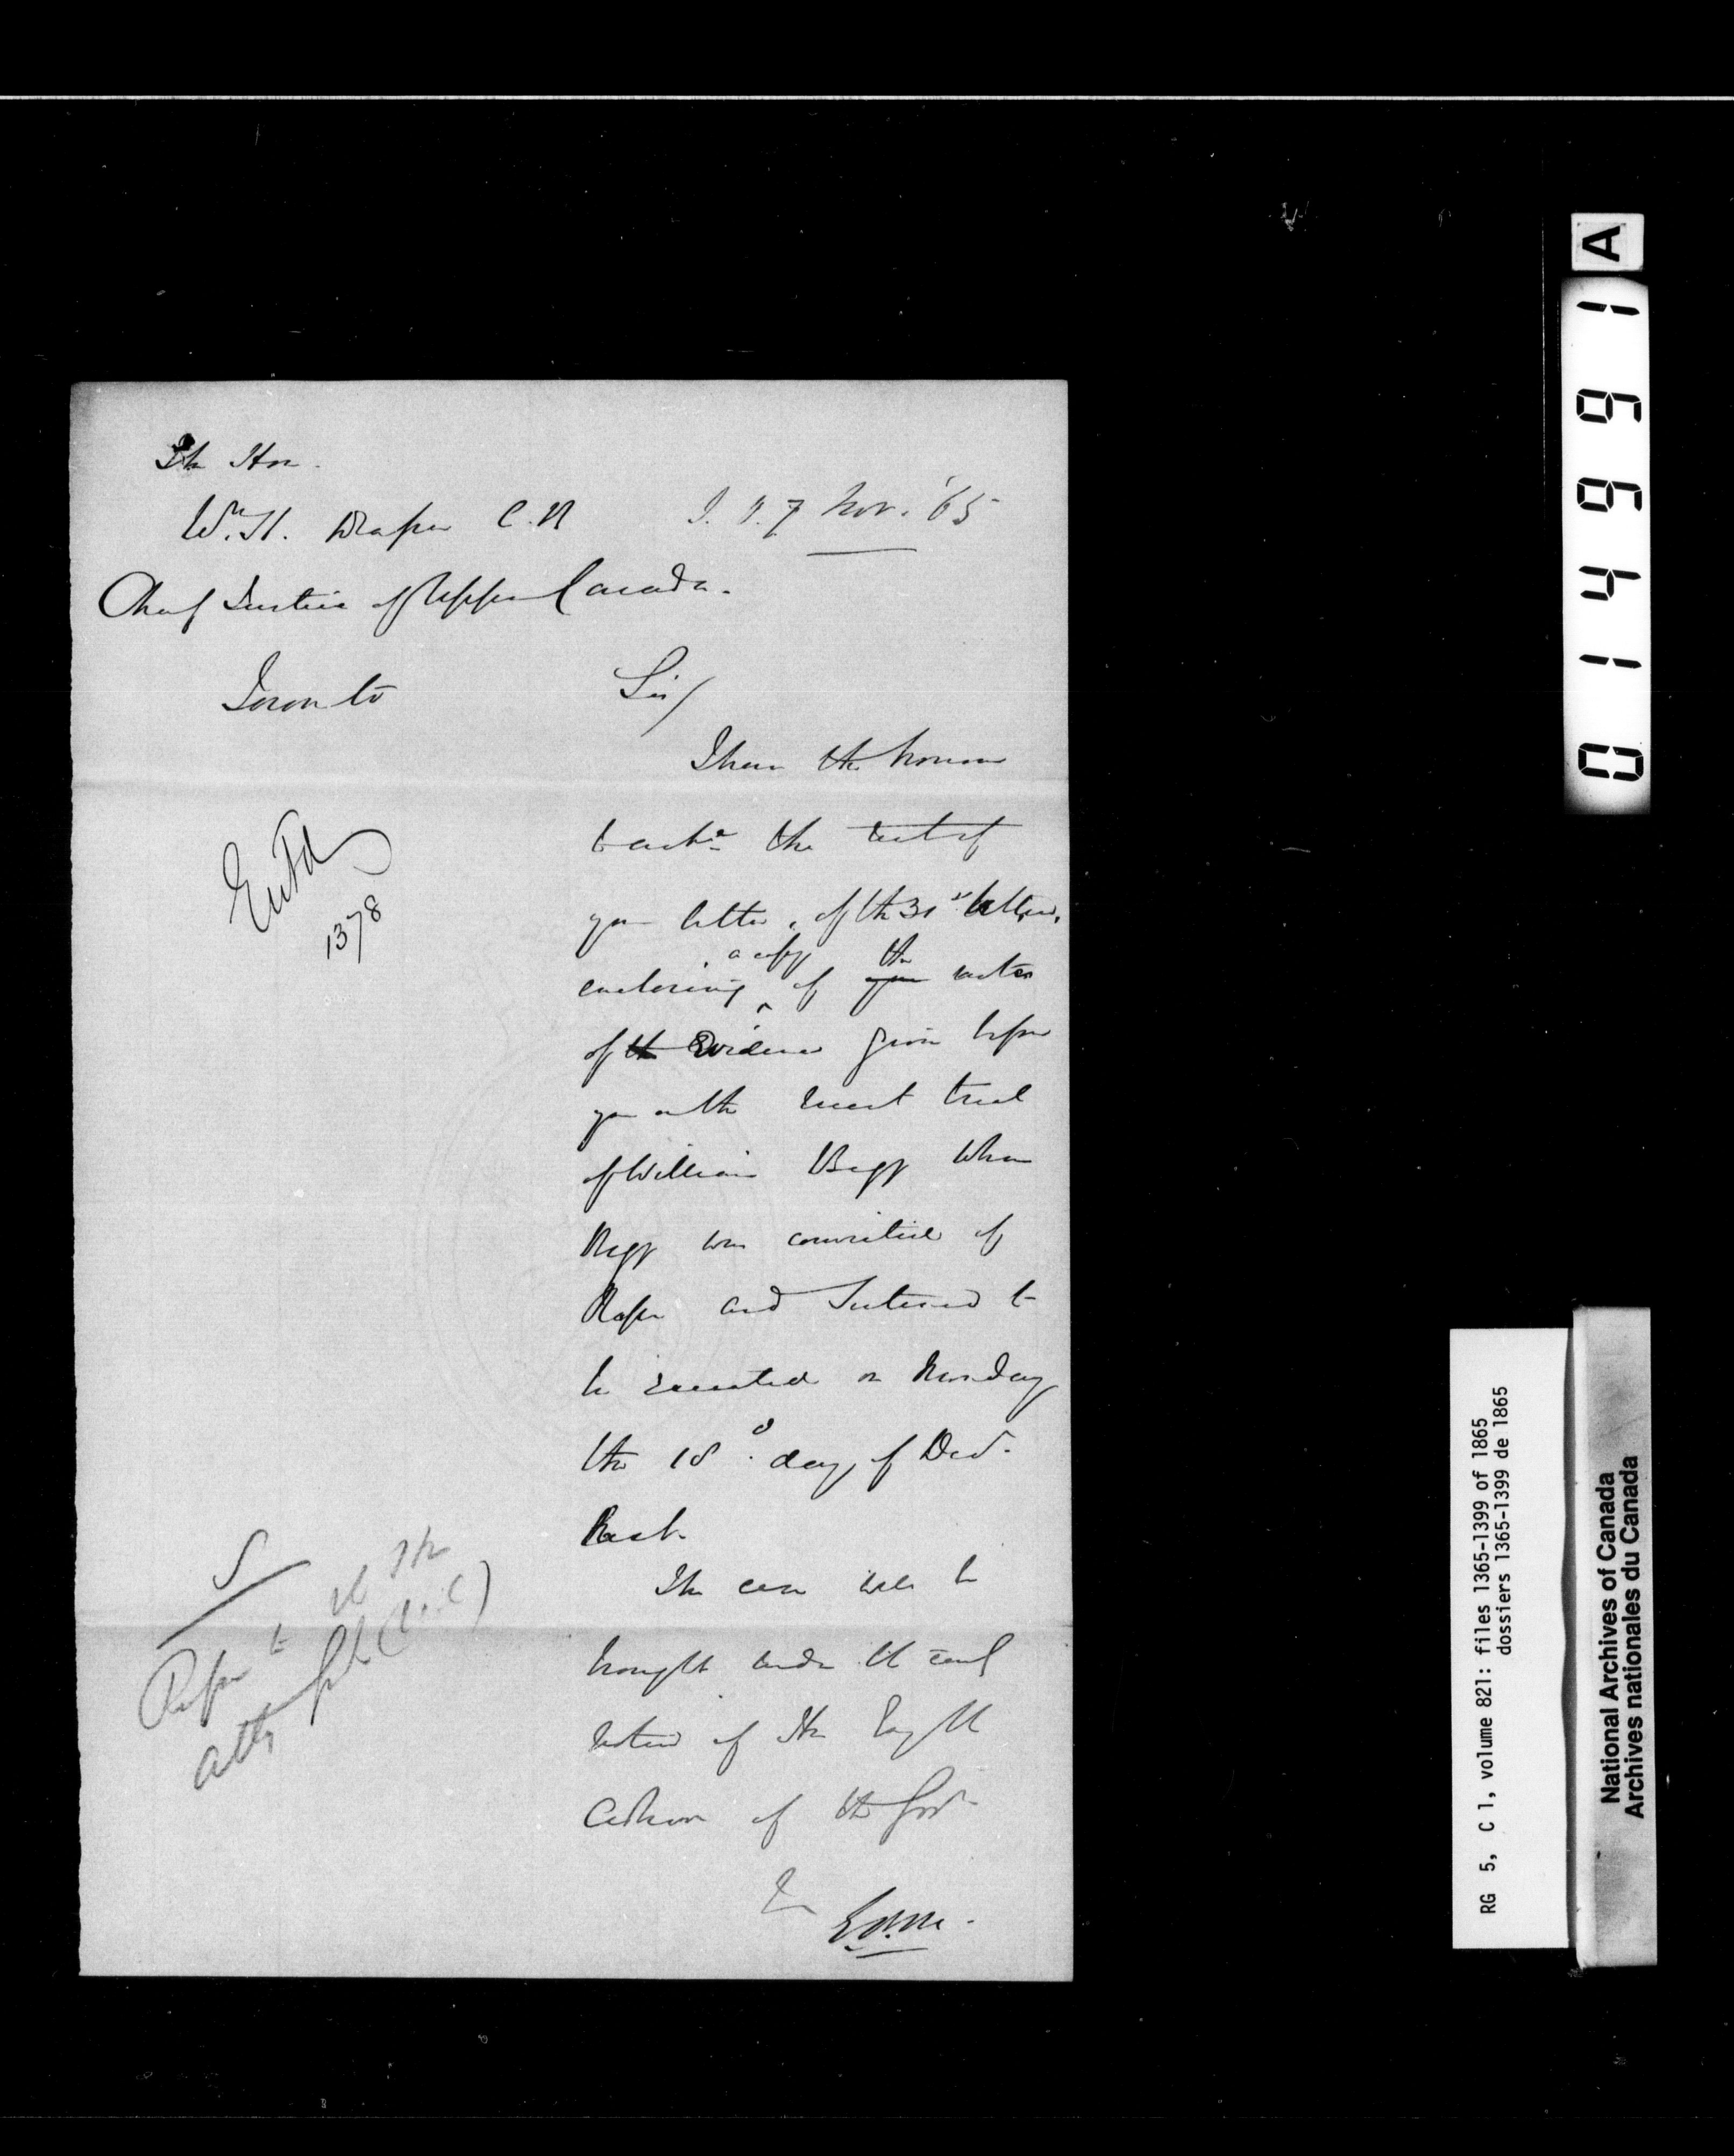 The Hon.
Wm. H. Draper C.B
7 Nov. '65
Chief Justice of Upper Canada.
Toronto
Sir/
I have the honour
to ackn. the rect of
your letter, of the 31st
enclosing a copy of the notes
of the Evidence given before
you at the recent trial
of William Begg when
Begg was convicted of
Rape and Sentenced to
be executed on Monday
the 18th day of Decr.
next.
The case will be
brought under the earl
notice of His Excy the
Admor of the Govt
E.A.M.
Entd
1378
Refer to the Hn
Atty Genl (U.C)
A
014991
RG 5, C 1, volume 821: files 1365-1399 of 1865
dossiers 1365-1399 de 1865
National Archives of Canada
Archives nationales du Canada